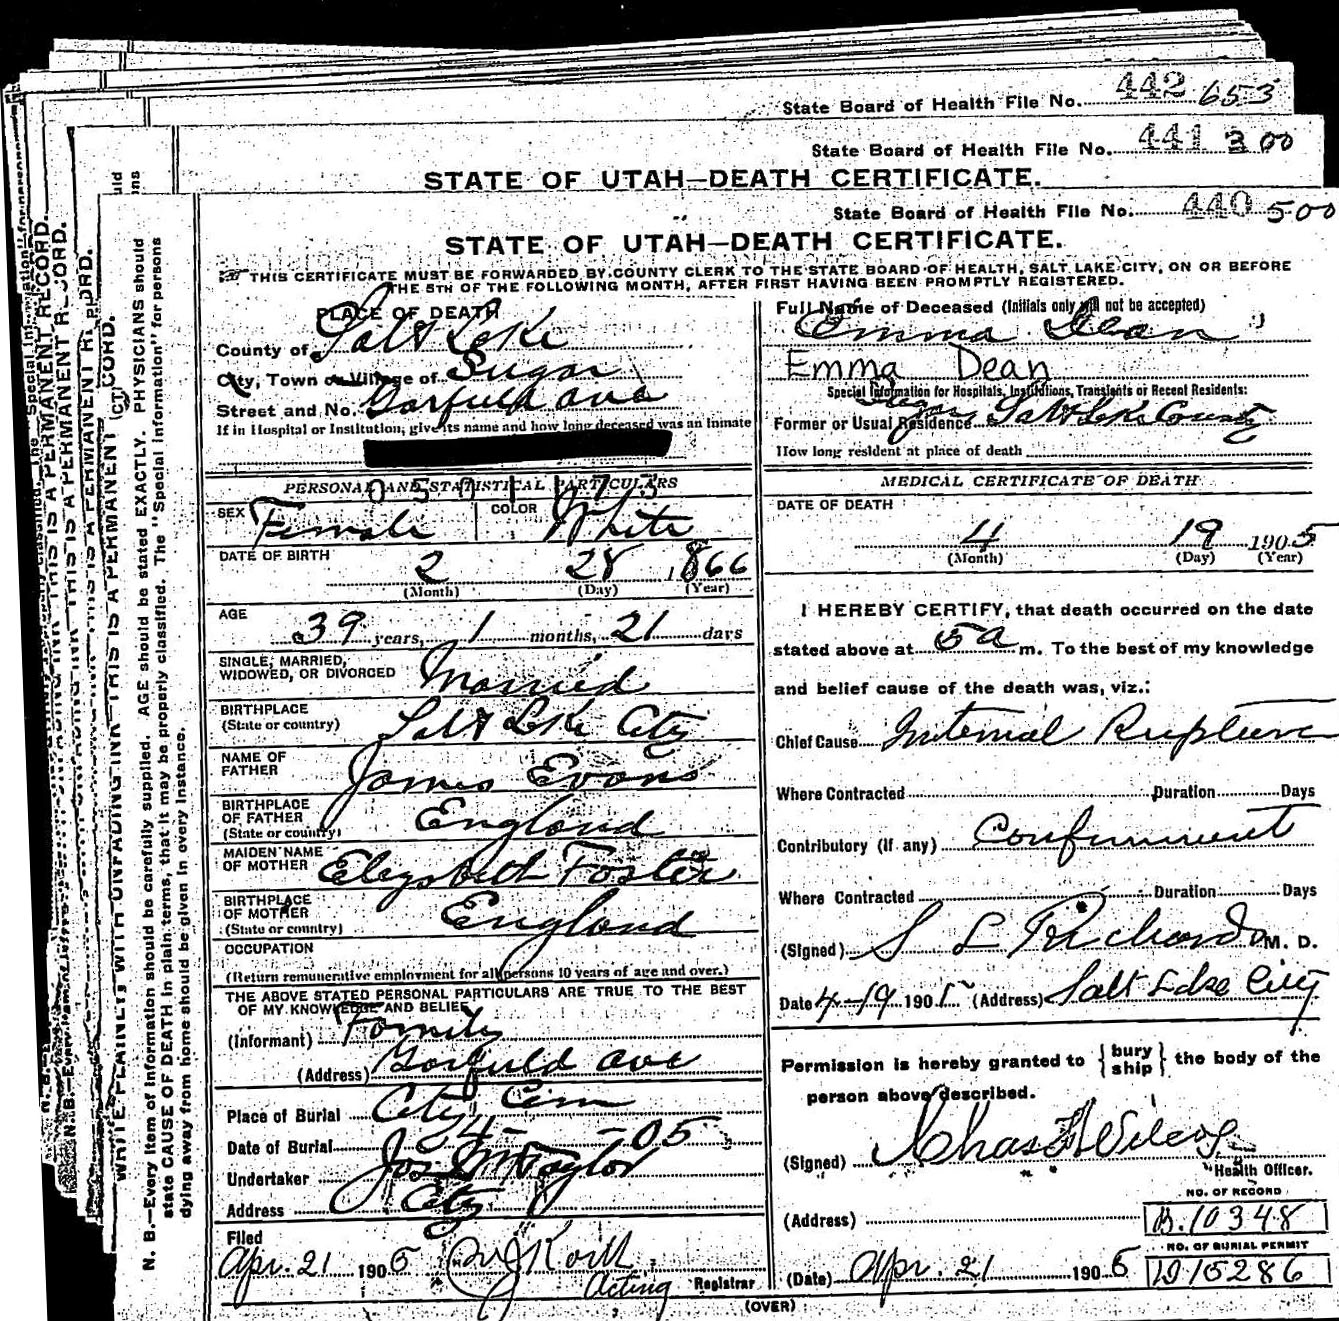 State Board of Health File No. 442 653
State Board of Health File No. 441 300
STATE OF UTAH—DEATH CERTIFICATE.
State Board of Health File No. 440 500
STATE OF UTAH—DEATH CERTIFICATE.
THIS CERTIFICATE MUST BE FORWARDED BY COUNTY CLERK TO THE STATE BOARD OF HEALTH, SALT LAKE CITY, ON OR BEFORE
THE 5TH OF THE FOLLOWING MONTH, AFTER FIRST HAVING BEEN PROMPTLY REGISTERED.
PLACE OF DEATH
County of Salt Lake
City, Town or Village of Sugar
Street and No. Garfield Ave
If in Hospital or Institution, give its name and how long deceased was an inmate
PERSONAL AND STATISTICAL PARTICULARS
SEX Female COLOR White
DATE OF BIRTH
2 28 1866
(Month) (Day) (Year)
AGE
39 years, 1 months, 21 days
SINGLE, MARRIED,
WIDOWED, OR DIVORCED Married
BIRTHPLACE
(State or country) Salt Lake City
NAME OF
FATHER James Evans
BIRTHPLACE
OF FATHER
(State or country) England
MAIDEN NAME
OF MOTHER Elizabeth Foster
BIRTHPLACE
OF MOTHER
(State or country) England
OCCUPATION
(Return remunerative employment for all persons 10 years of age and over.)
THE ABOVE STATED PERSONAL PARTICULARS ARE TRUE TO THE BEST
OF MY KNOWLEDGE AND BELIEF
(Informant) Family
(Address) Garfield Ave
Place of Burial City Cem
Date of Burial 24 - -05
Undertaker Jos Wm Taylor
Address City
Filed
Apr. 21 1905
Acting Registrar
Full Name of Deceased (Initials only will not be accepted)
Emma Dean
Emma Dean
Special Information for Hospitals, Institutions, Transients or Recent Residents:
Former or Usual Residence Sugar Salt Lake County
How long resident at place of death
MEDICAL CERTIFICATE OF DEATH
DATE OF DEATH
4 19 1905
(Month) (Day) (Year)
I HEREBY CERTIFY, that death occurred on the date
stated above at 5 a m. To the best of my knowledge
and belief cause of the death was, viz.:
Chief Cause Internal Rupture
Where Contracted Duration Days
Contributory (if any) Confinement
Where Contracted Duration Days
(Signed) S L Richards M. D.
Date 4-19 1905 (Address) Salt Lake City
Permission is hereby granted to { bury
ship } the body of the
person above described.
(Signed) Chas Wilcox
Health Officer.
NO. OF RECORD
(Address) B.10348
NO. OF BURIAL PERMIT
(Date) Apr. 21 1905 B15286
(OVER)
WRITE PLAINLY WITH UNFADING INK THIS IS A PERMANENT RECORD.
N. B.—Every item of information should be carefully supplied. AGE should be stated EXACTLY. PHYSICIANS should
state CAUSE OF DEATH in plain terms, that it may be properly classified. The "Special Information" for persons
dying away from home should be given in every instance.